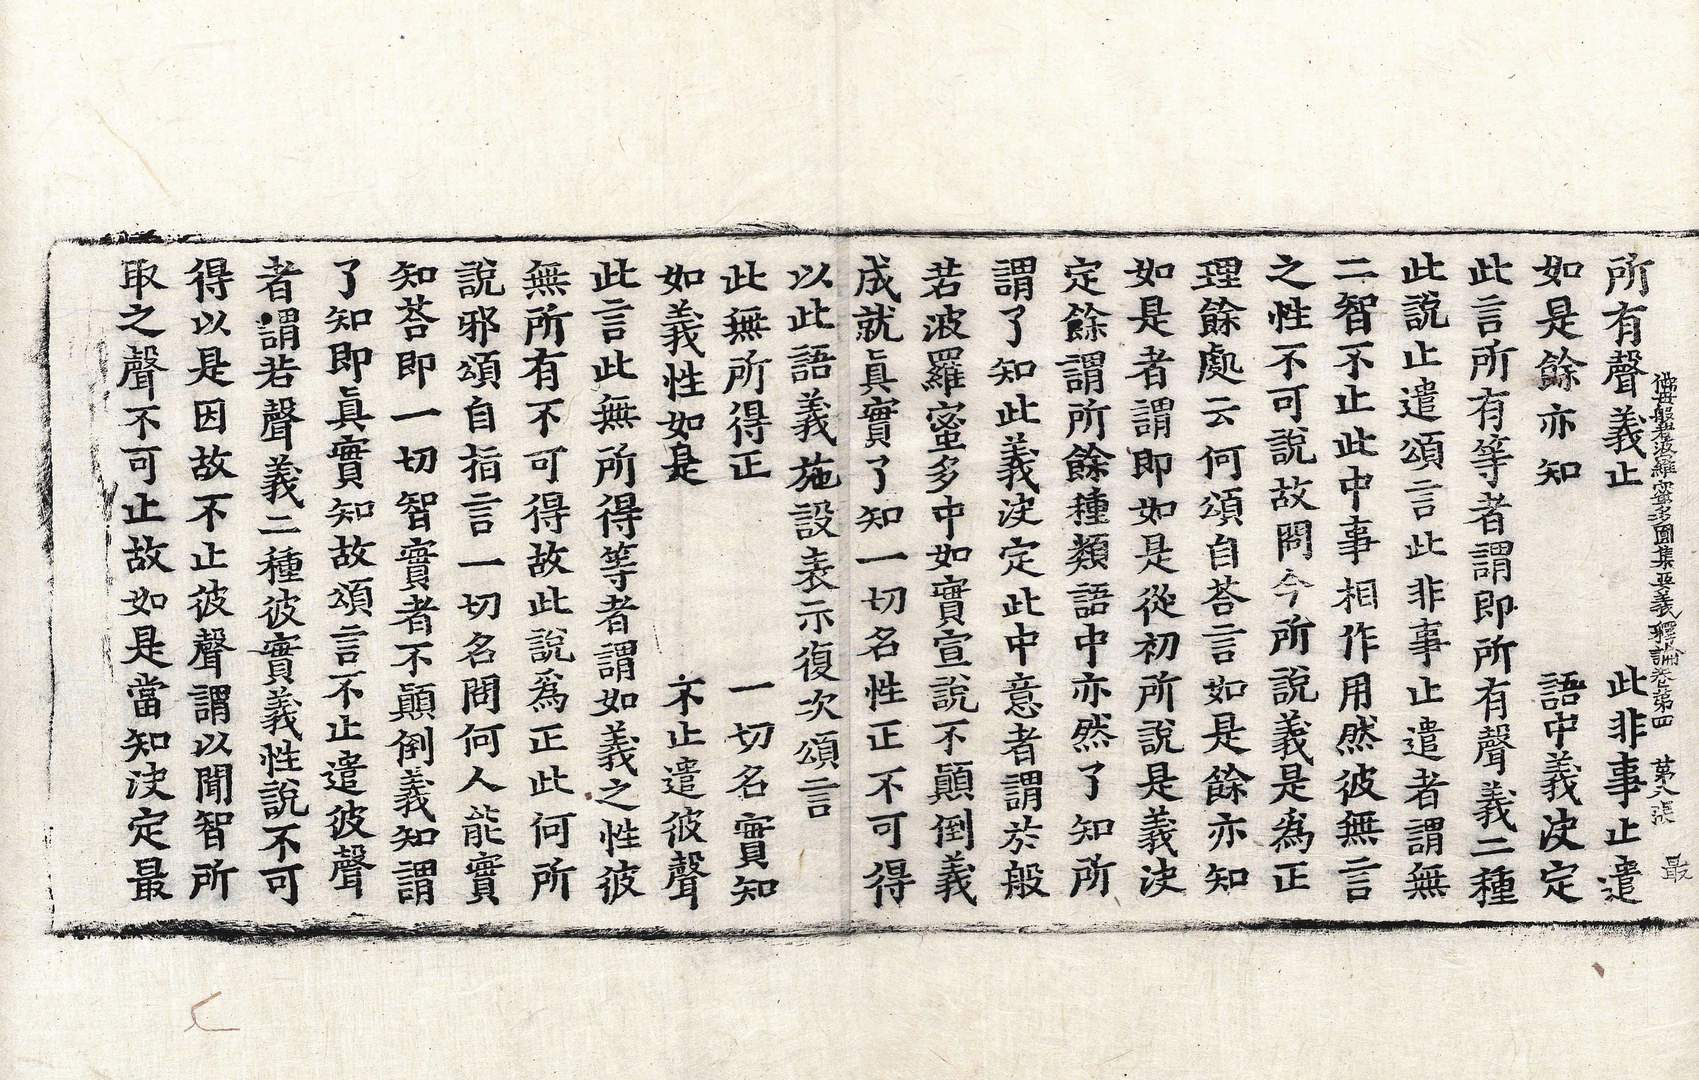 佛母般若波羅蜜多圓集要義釋論卷第四　第八張　最
所有聲義止　此非事止遣
如是餘亦知　語中義決定
此言所有等者謂即所有聲義二種
此說止遣頌言此非事止遣者謂無
二智不止此中事相作用然彼無言
之性不可說故問今所說義是為正
理餘處云何頌自荅言如是餘亦知
如是者謂即如是從初所說是義決
定餘謂所餘種類語中亦然了知所
謂了知此義決定此中意者謂於般
若波羅蜜多中如實宣說不顛倒義
成就真實了知一切名性正不可得
以此語義施設表示復次頌言
此無所得正　一切名實知
如義性如是　不止遣彼聲
此言此無所得等者謂如義之性彼
無所有不可得故此說為正此何所
說邪頌自指言一切名問何人能實
知荅即一切智實者不顛倒義知謂
了知即真實知故頌言不止遣彼聲
者謂若聲義二種彼實義性說不可
得以是因故不止彼聲謂以聞智所
取之聲不可止故如是當知決定最